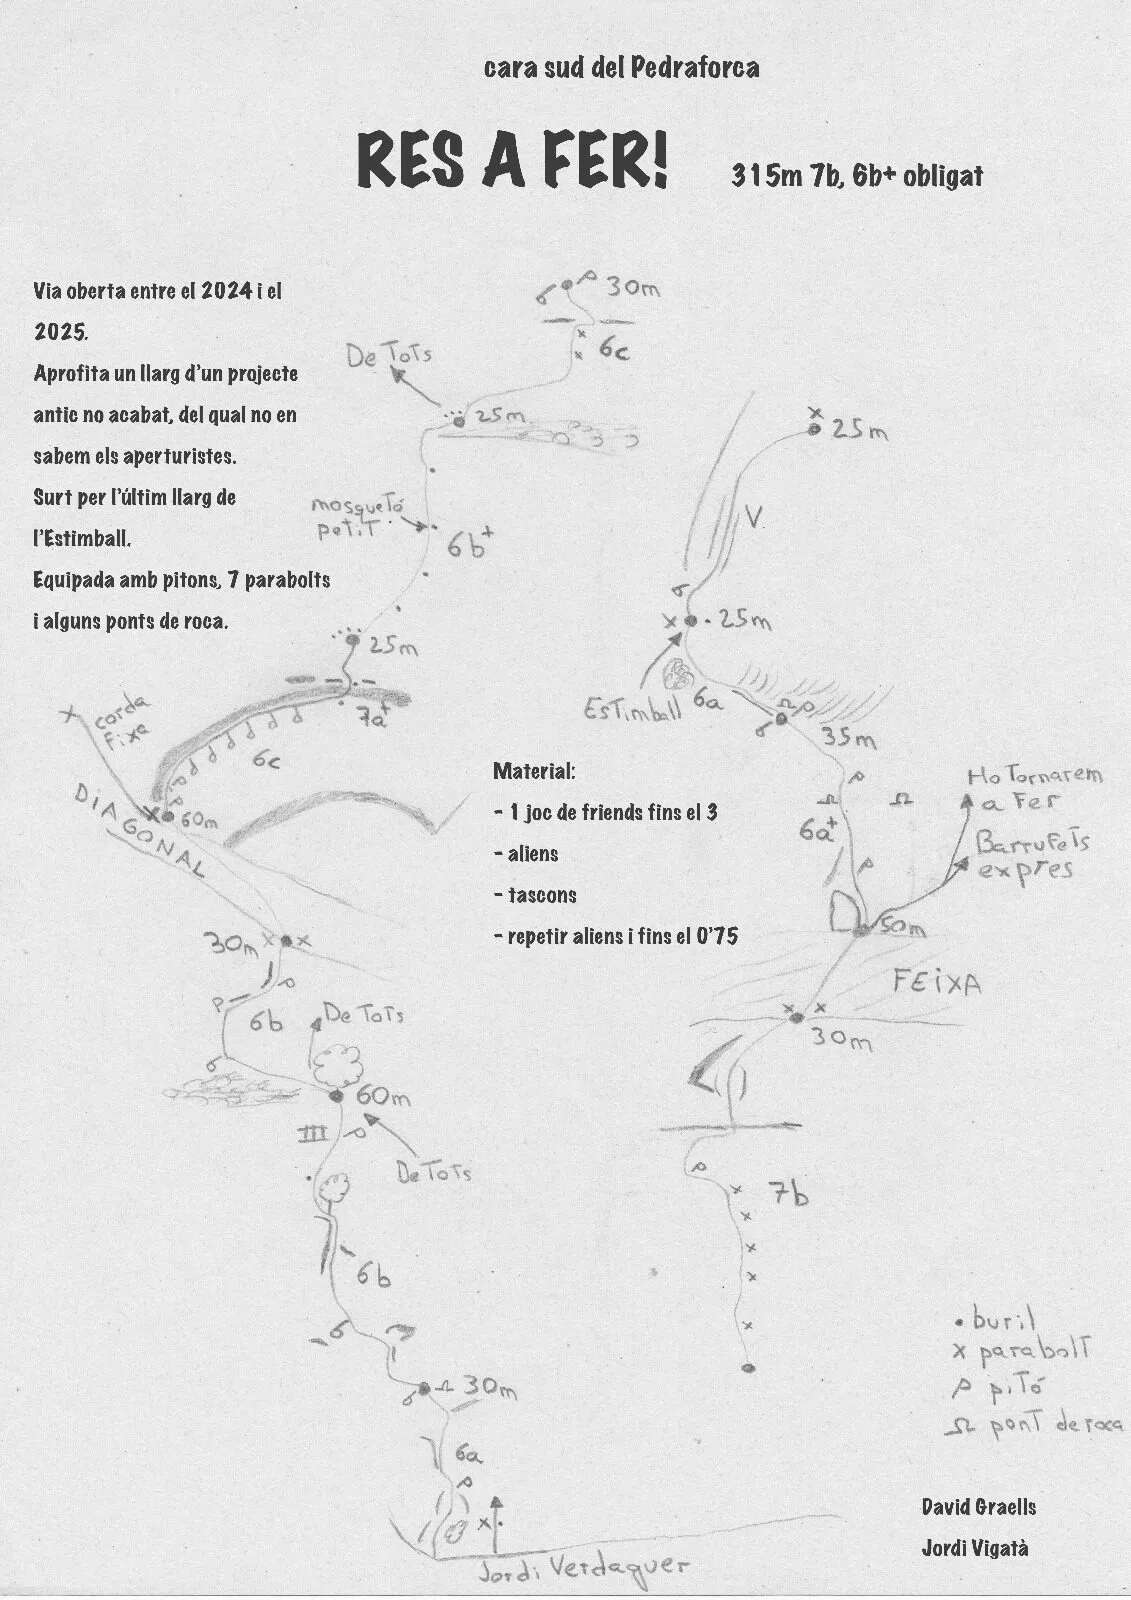 cara sud del Pedraforca
RES A FER!
315m 7b, 6b+ obligat
Via oberta entre el 2024 i el
2025.
Aprofita un llarg d'un projecte
antic no acabat, del qual no en
sabem els aperturistes.
Surt per l'últim llarg de
l'Estimball.
Equipada amb pitons, 7 parabolts
i alguns ponts de roca.
30m
6c
De Tots
25m
mosquetó
petit
6b+
25m
7a+
6c
corda
fixa
60m
DIAGONAL
30m
6b
De Tots
60m
III
De Tots
6b
30m
6a
Jordi Verdaguer
25m
V
25m
Estimball
6a
35m
6a+
Ho Tornarem
a Fer
Barrufets
expres
50m
FEIXA
30m
7b
Material:
- 1 joc de friends fins el 3
- aliens
- tascons
- repetir aliens i fins el 0'75
• buril
x parabolt
pitó
pont de roca
David Graells
Jordi Vigatà